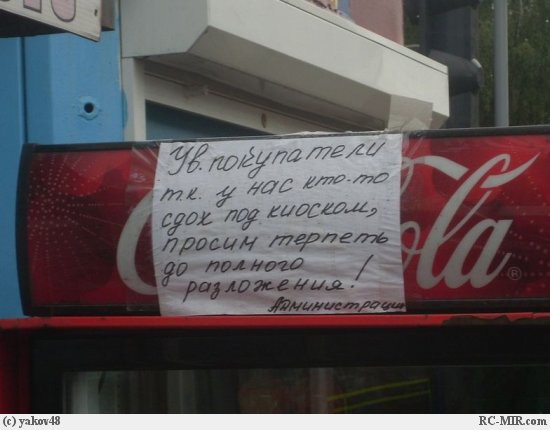 Ув. покупатели
т.к. у нас кто-то
сдох под киоском,
просим терпеть
до полного
разложения!
Администрация
Coca-Cola ®
(c) yakov48
RC-MIR.com